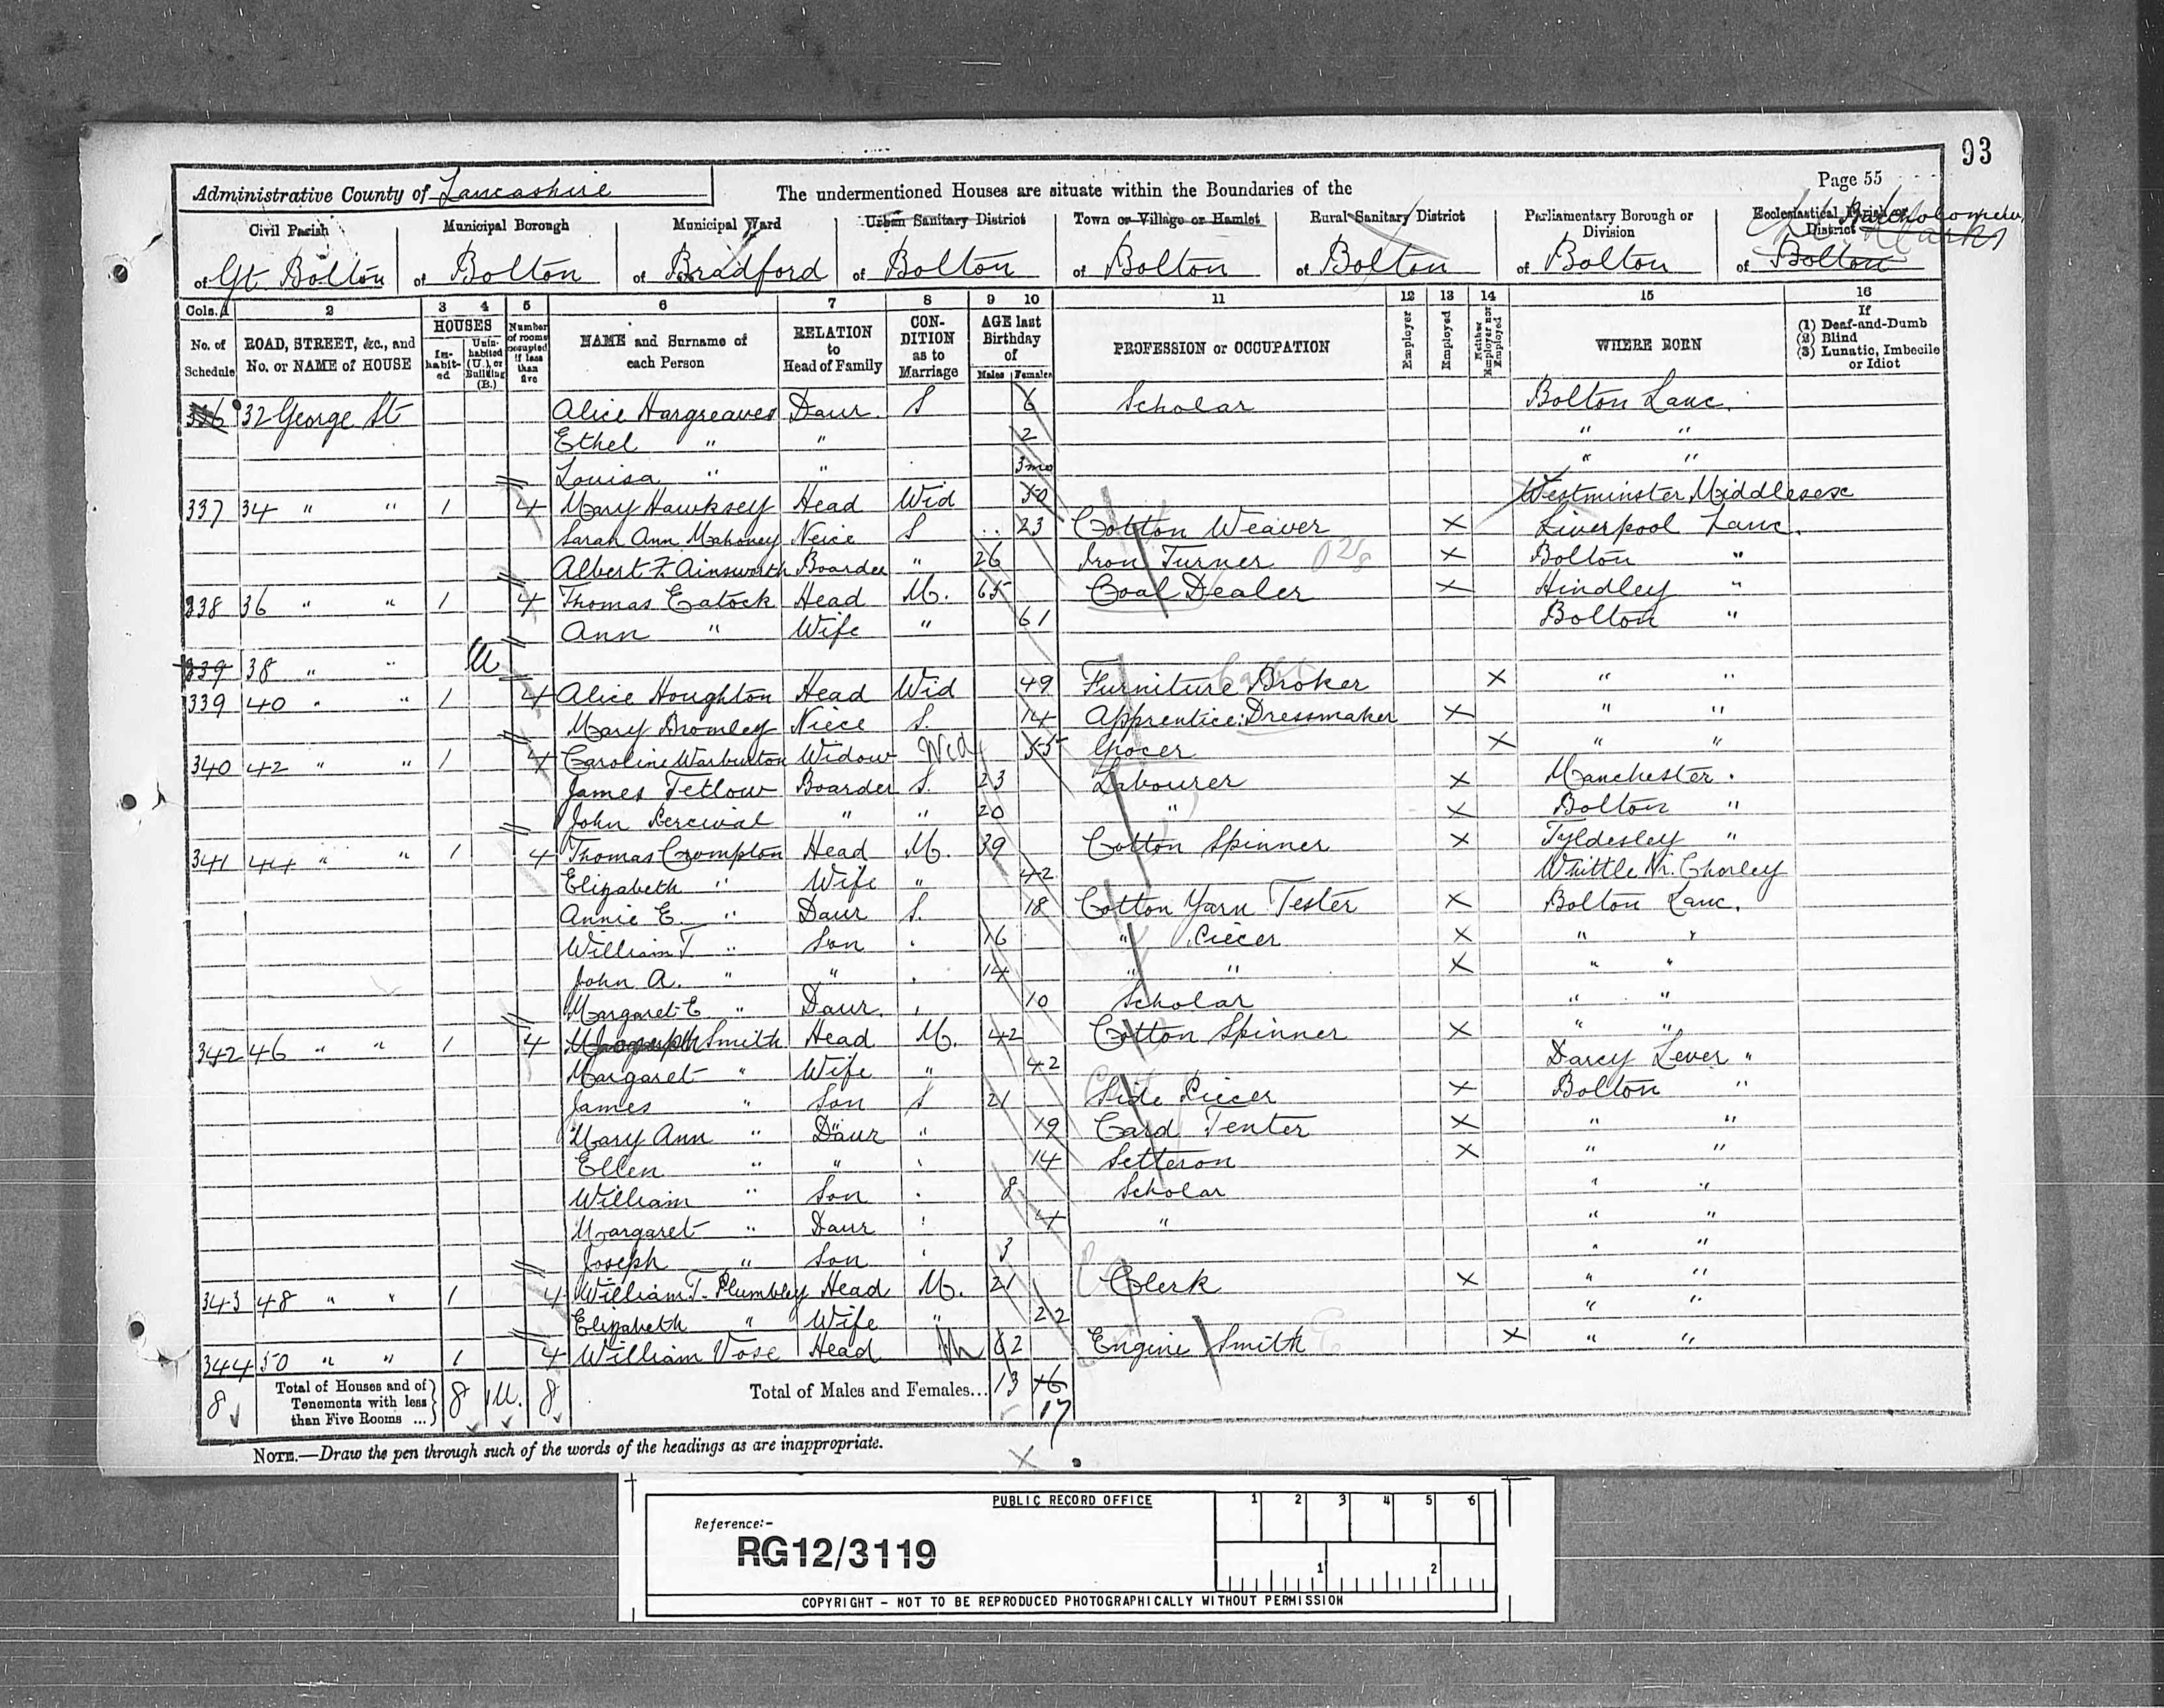 93
Administrative County of Lancashire The undermentioned Houses are situate within the Boundaries of the Page 55
Civil Parish Municipal Borough Municipal Ward Urban Sanitary District Town or Village or Hamlet Rural Sanitary District Parliamentary Borough or Division Ecclesiastical Parish or District
of Gt. Bolton of Bolton of Bradford of Bolton of Bolton of Bolton of Bolton of Bolton
St Marks
Cols. 1 2 3 4 5 6 7 8 9 10 11 12 13 14 15 16
No. of Schedule ROAD, STREET, &c., and No. or NAME of HOUSE HOUSES Inhabited Uninhabited (U.), or Building (B.) Number of rooms occupied if less than five NAME and Surname of each Person RELATION to Head of Family CONDITION as to Marriage AGE last Birthday of Males Females PROFESSION or OCCUPATION Employer Employed Neither Employer nor Employed WHERE BORN If (1) Deaf-and-Dumb (2) Blind (3) Lunatic, Imbecile or Idiot
336 32 George St Alice Hargreaves Daur. S 6 Scholar Bolton Lanc.
Ethel " " 2 " "
Louisa " " 3mo " "
337 34 " " 1 4 Mary Hawksey Head Wid 50 Westminster Middlesex
Sarah Ann Mahoney Neice S 23 Cotton Weaver X Liverpool Lanc.
Albert F. Ainsworth Boarder " 26 Iron Turner X Bolton "
338 36 " " 1 4 Thomas Eatock Head M. 65 Coal Dealer X Hindley "
Ann " Wife " 61 Bolton "
339 38 " " U
339 40 " " 1 4 Alice Houghton Head Wid 49 Furniture Broker X " "
Mary Bromley Niece S. 14 Apprentice: Dressmaker X " "
340 42 " " 1 4 Caroline Warburton Widow Wid 55 Grocer X " "
James Tetlow Boarder S. 23 Labourer X Manchester .
John Percival " " 20 " X Bolton "
341 44 " " 1 4 Thomas Crompton Head M. 39 Cotton Spinner X Tyldesley "
Elizabeth " Wife " 42 Whittle Nr. Chorley
Annie E. " Daur S. 18 Cotton Yarn Tester X Bolton Lanc.
William T. " Son . 16 " Piecer X " "
John A. " " . 14 " " X " "
Margaret E " Daur. . 10 Scholar " "
342 46 " " 1 4 Joseph Smith Head M. 42 Cotton Spinner X " "
Margaret " Wife " 42 Darcy Lever "
James " Son S 21 Side Piecer X Bolton "
Mary Ann " Daur " 19 Card Tenter X " "
Ellen " " . 14 Setteron X " "
William " Son . 8 Scholar " "
Margaret " Daur . 4 " " "
Joseph " Son . 3 " "
343 48 " " 1 4 William T. Plumbley Head M. 21 Clerk X " "
Elizabeth " Wife " 22 " "
344 50 " " 1 4 William Vose Head M 62 Engine Smith X " "
8 Total of Houses and of Tenements with less than Five Rooms ... 8 1U. 8 Total of Males and Females... 13 16
17
NOTE.—Draw the pen through such of the words of the headings as are inappropriate.
X
PUBLIC RECORD OFFICE 1 2 3 4 5 6
Reference:-
RG12/3119
1 2
COPYRIGHT - NOT TO BE REPRODUCED PHOTOGRAPHICALLY WITHOUT PERMISSION